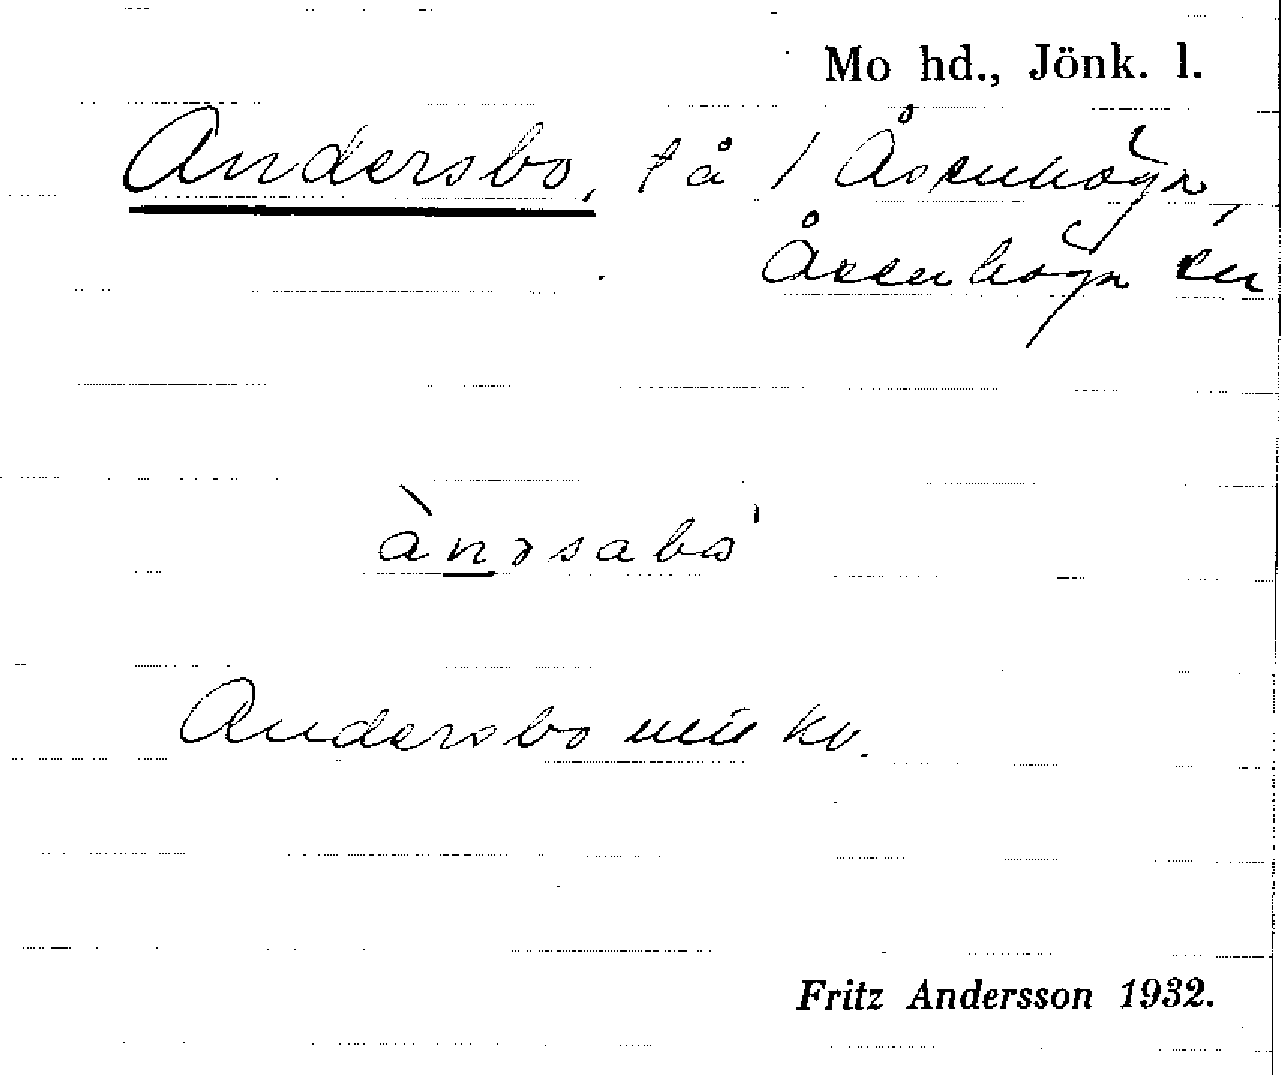 Mo hd., Jönk. l.
Andersbo, på 1 Åsenhöga,
Åsenhöga sn
ànәsabo'
Andersbo
Fritz Andersson 1932.